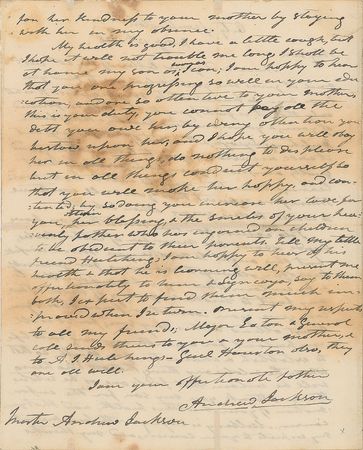 for her kindness to your mother by staying
with her in my absence.
My health is good, I have a little cough, but
I hope it will not trouble me long, I shall be
at home my son as soon as I can; I am happy to hear
that you are progressing so well in your edu
cation, and are so attentive to your mother,
this is your duty, you cannot pay all the
debt you owe her, by every attention you
bestow upon her, and I hope you will obey
her in all things, do nothing to displease
but in all things conduct yourself so
that you will make her happy, and con
tented; by so doing you increase her love for
you, her blessing, & the smiles of your hea
venly father who has enjoined on children
to be obedient to their parents. Tell my little
friend Hutchings I am happy to hear of his
health & that he is learning well, present me
affectionately to him & Lyncoya, say to them
both, I expect to find them much
improved when I return. present my respects
to all my friends; Major Eaton & General
Call sends theirs to you & your mother, &
to A. J. Hutchings - Genl Houston also, they
are all well.
I am your affectionate father
Andrew Jackson
Master Andrew Jackson